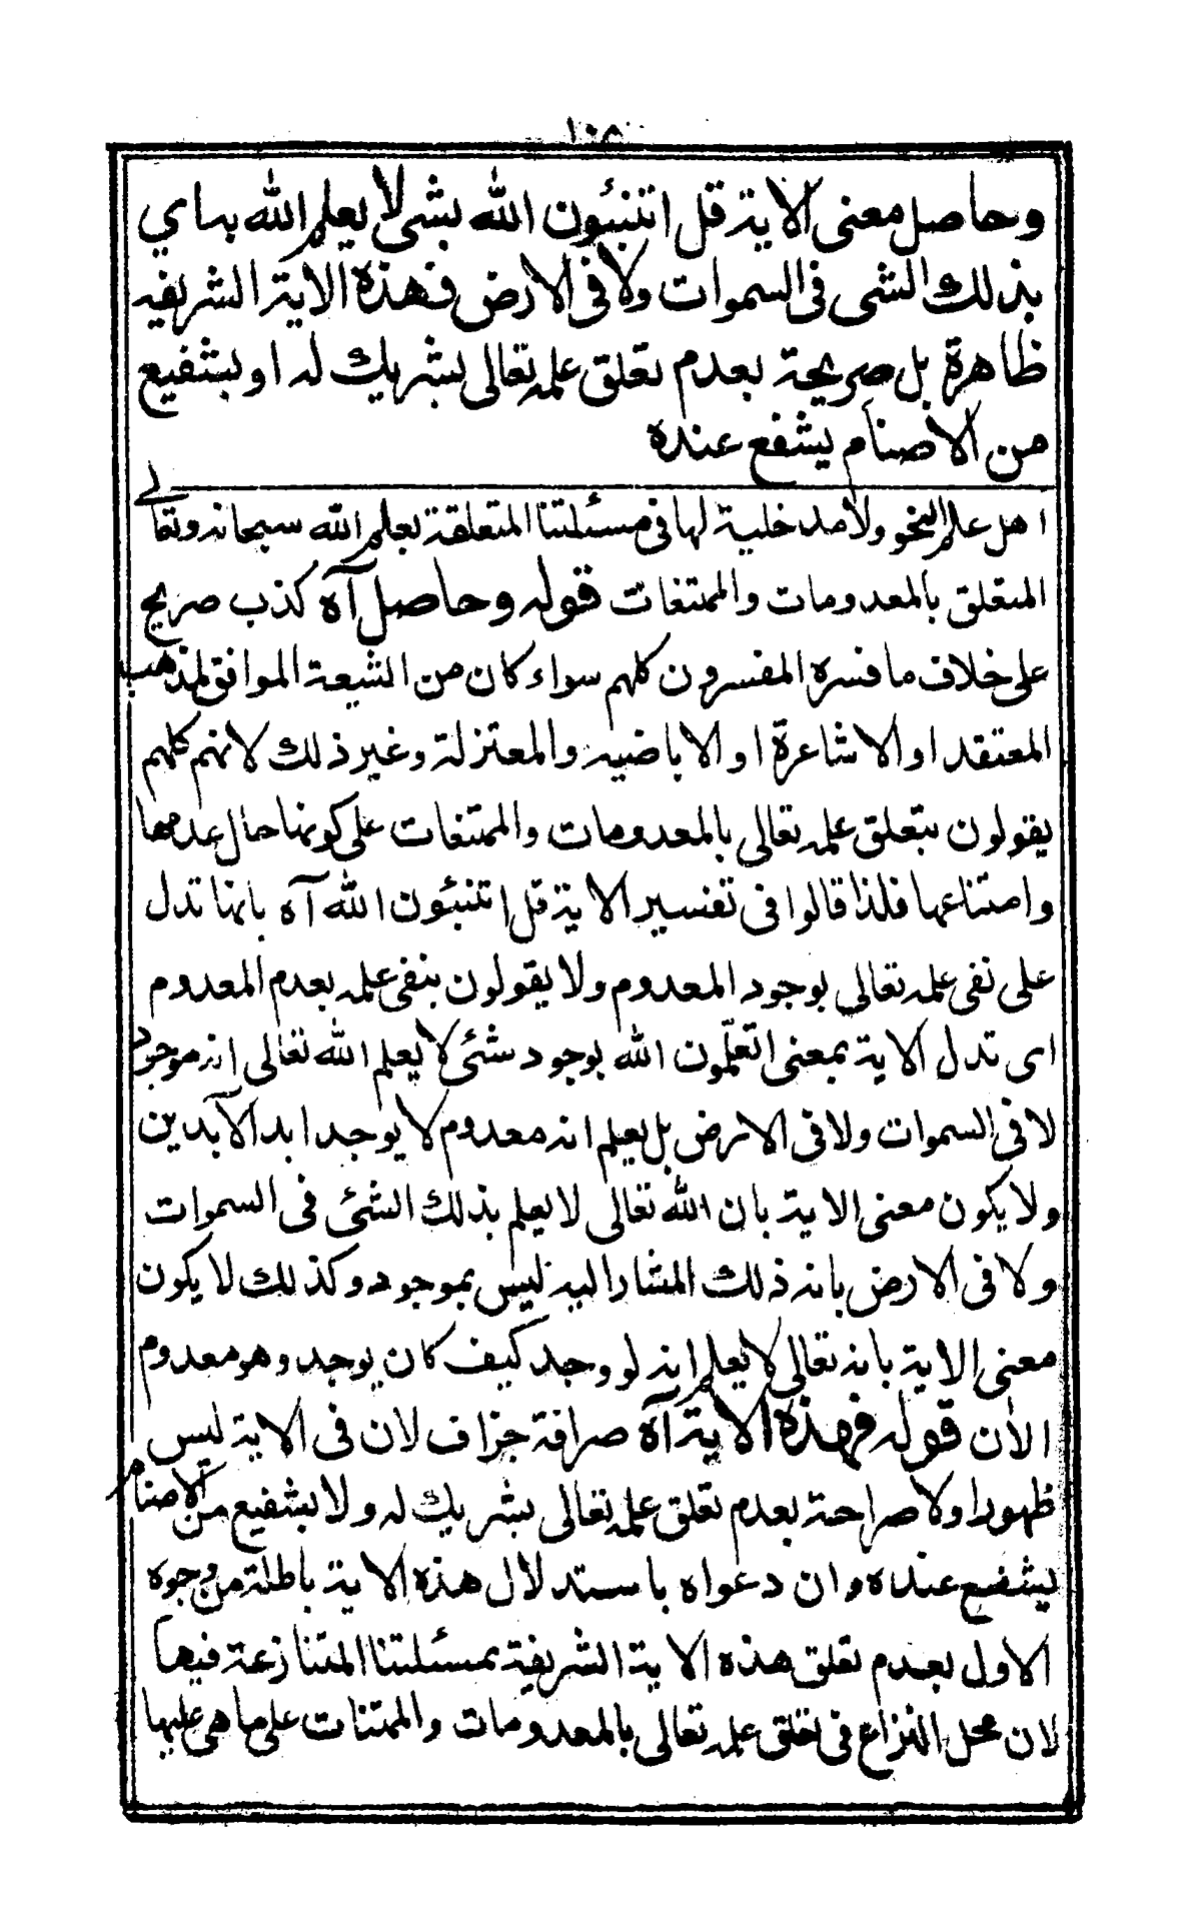 ١٠٥
وحاصل معنى الاية قل اتنبئون الله بشئ لا يعلم الله بهاي
بذلك الشى فى السموات ولا فى الارض فهذه الاية الشريفه
ظاهرة بل صريحة بعدم تعلق علمه تعالى بشريك له او بشفيع
من الاصنام يشفع عنده
اهل علم النحو ولا مدخلية لها فى مسئلتنا المتعلقة بعلم الله سبحانه وتعالى
المتعلق بالمعدومات والممتنعات قوله وحاصل آه كذب صريح
على خلاف ما فسره المفسرون كلهم سواء كان من الشيعة الموافق لمذهب
المعتقد او الاشاعرة او الاباضيه والمعتزلة وغير ذلك لانهم كلهم
يقولون بتعلق علمه تعالى بالمعدومات والممتنعات على كونها حال عدمها
وامتناعها فلذا قالوا فى تفسير الاية قل اتنبئون الله آه بانها تدل
على نفى علمه تعالى بوجود المعدوم ولا يقولون بنفى علمه بعدم المعدوم
اى تدل الاية بمعنى اتعلّمون الله بوجود شئى لا يعلم الله تعالى انه موجود
لا فى السموات ولا فى الارض بل يعلم انه معدوم لا يوجد ابد الآبدين
ولا يكون معنى الاية بان الله تعالى لا يعلم بذلك الشئى فى السموات
ولا فى الارض بانه ذلك المشار اليه ليس بموجود وكذلك لا يكون
معنى الاية بانه تعالى لا يعلم انه لو وجد كيف كان يوجد وهو معدوم
الأن قوله فهذه الاية آه صرافة جزاف لان فى الاية ليس
ظهورا ولا صراحة بعدم تعلق علمه تعالى بشريك له ولا بشفيع من الاصنام
يشفع عنده وان دعواه باستدلال هذه الاية باطلة من وجوه
الاول بعدم تعلق هذه الاية الشريفة بمسئلتنا المتنازعة فيها
لان محل النزاع فى تعلق علمه تعالى بالمعدومات والممتنات على ما هى عليها